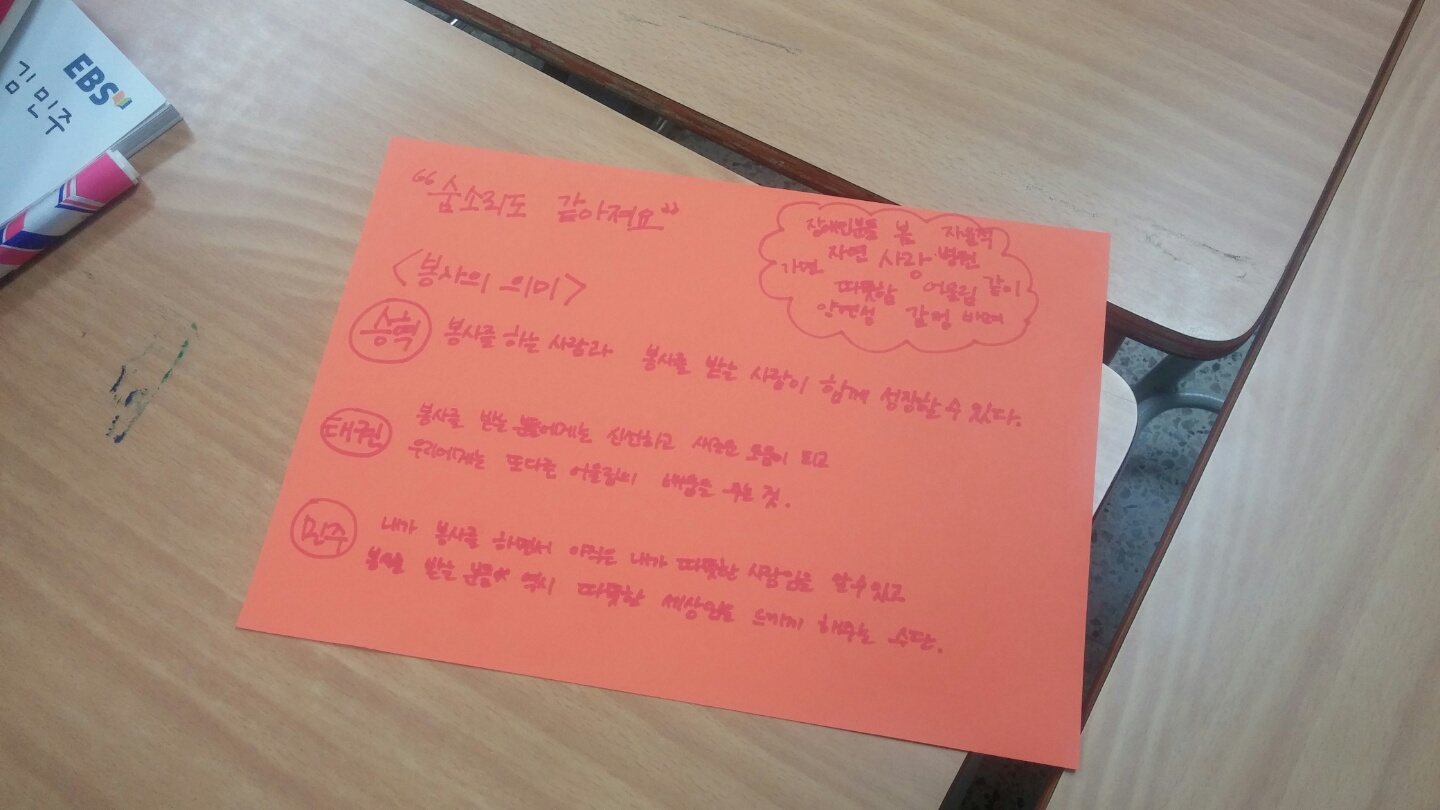 EBS
김민주
"숨소리도 같아져요"
장애인분들 봄 자율적
자연 사랑 병원
가면 따뜻함 어울림 같이
양면성 감정
<봉사의 의미>
승혁 봉사를 하는 사람과 봉사를 받는 사람이 함께 성장할 수 있다.
태권 봉사를 받는 분들에게는 신선하고 새로운 도움이 되고
우리에게는 또다른 어울림의 배움을 주는 것.
민주 내가 봉사를 하면서 아직은 내가 따뜻한 사람임을 알 수 있고
봉사를 받는 분들 역시 따뜻한 세상임을 느끼게 해주는 수단.